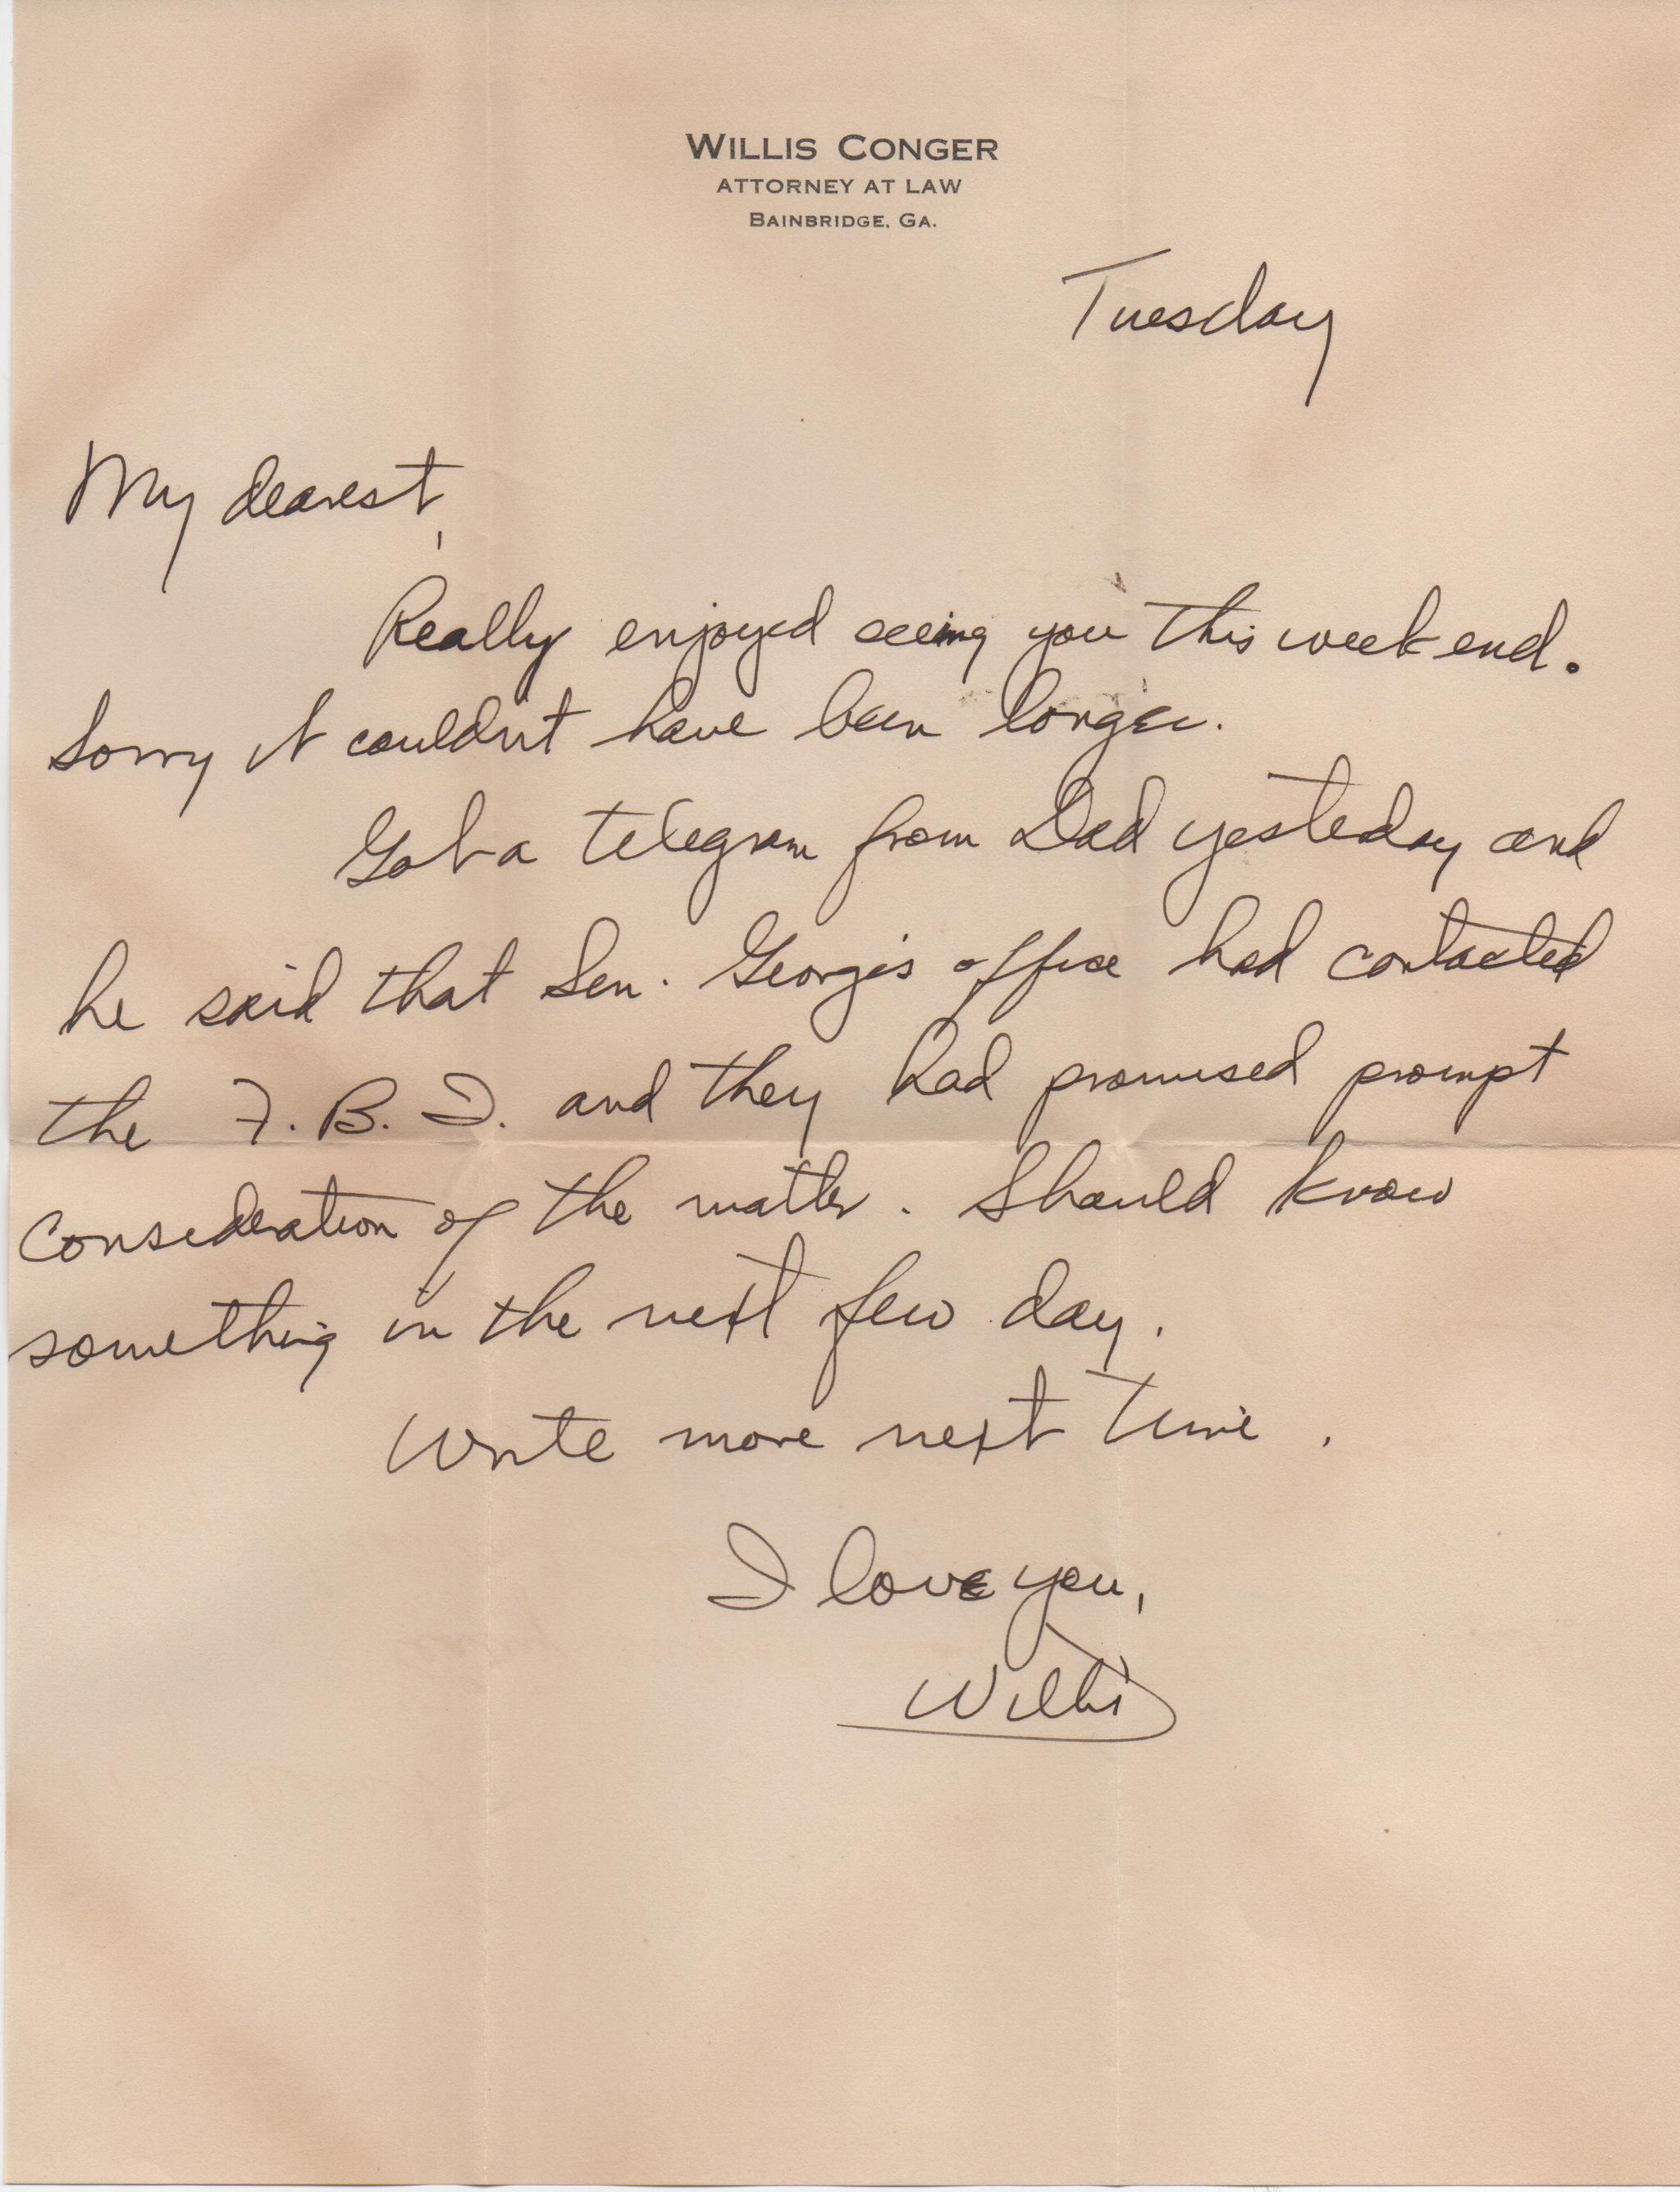 WILLIS CONGER
ATTORNEY AT LAW
BAINBRIDGE, GA.
Tuesday
My dearest,
Really enjoyed seeing you this week end.
Sorry it couldn't have been longer.
Got a telegram from Dad yesteday and
he said that Sen. George's office had contacted
the F. B. I. and they had promised prompt
consideration of the matter. Should know
something in the next few day.
Write more next time.
I love you,
Willis